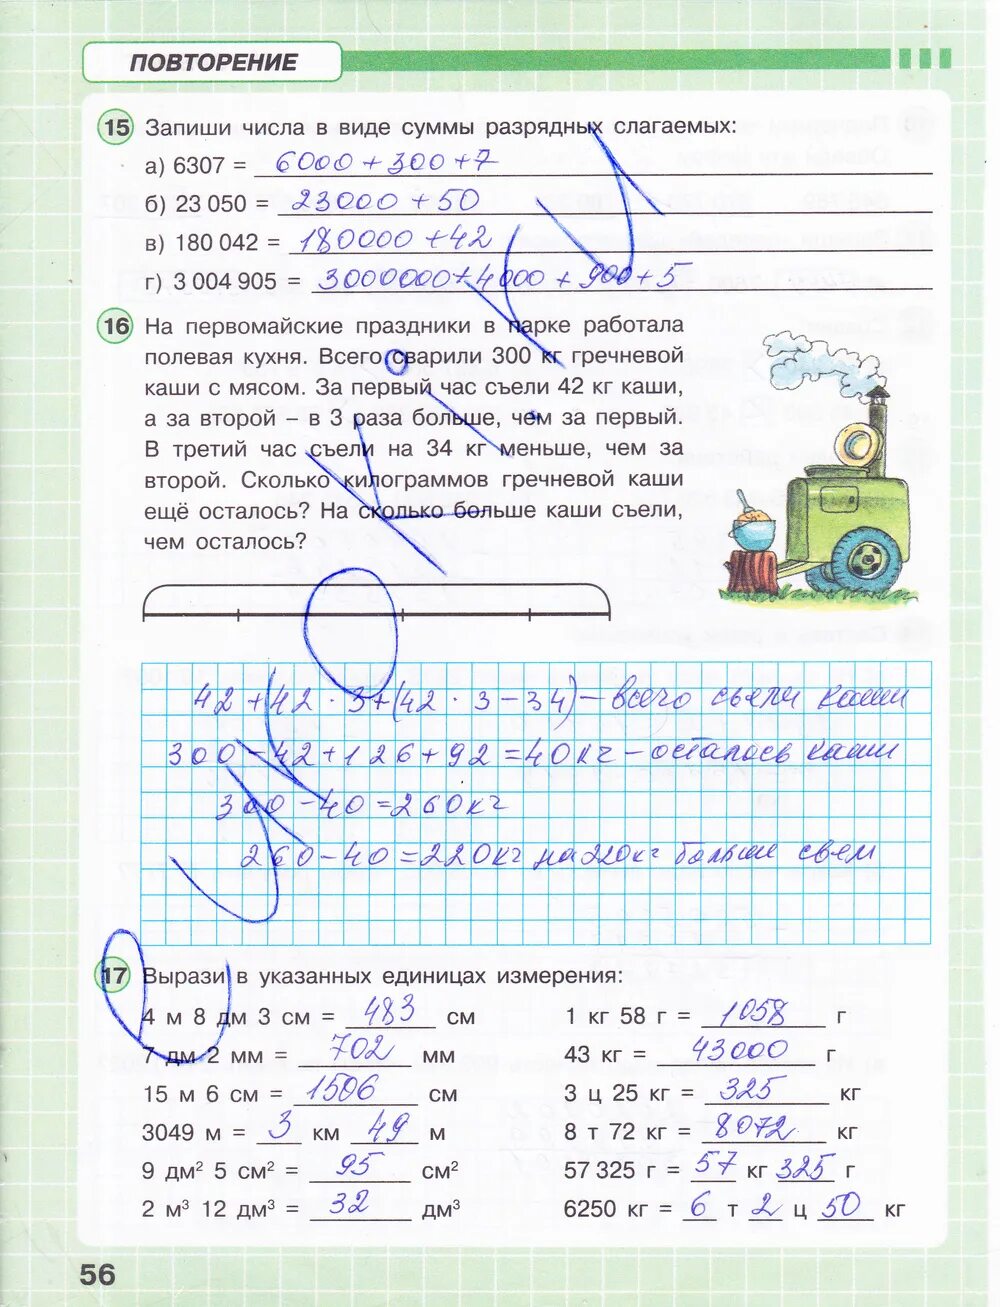 ПОВТОРЕНИЕ
15 Запиши числа в виде суммы разрядных слагаемых:
а) 6307 = 6000 + 300 + 7
б) 23 050 = 23000 + 50
в) 180 042 = 180000 + 42
г) 3 004 905 = 3000000 + 4000 + 900 + 5
16 На первомайские праздники в парке работала
полевая кухня. Всего сварили 300 кг гречневой
каши с мясом. За первый час съели 42 кг каши,
а за второй – в 3 раза больше, чем за первый.
В третий час съели на 34 кг меньше, чем за
второй. Сколько килограммов гречневой каши
ещё осталось? На сколько больше каши съели,
чем осталось?
42 + (42 · 3 + (42 · 3 – 34) – всего съели каши
300 – 42 + 126 + 92 = 40 кг – осталось каши
300 – 40 = 260 кг
260 – 40 = 220 кг на 220 кг больше свем
17 Вырази в указанных единицах измерения:
4 м 8 дм 3 см = 483 см
1 кг 58 г = 1058 г
7 дм 2 мм = 702 мм
43 кг = 43000 г
15 м 6 см = 1506 см
3 ц 25 кг = 325 кг
3049 м = 3 км 49 м
8 т 72 кг = 8072 кг
9 дм² 5 см² = 95 см²
57 325 г = 57 кг 325 г
2 м³ 12 дм³ = 32 дм³
6250 кг = 6 т 2 ц 50 кг
56